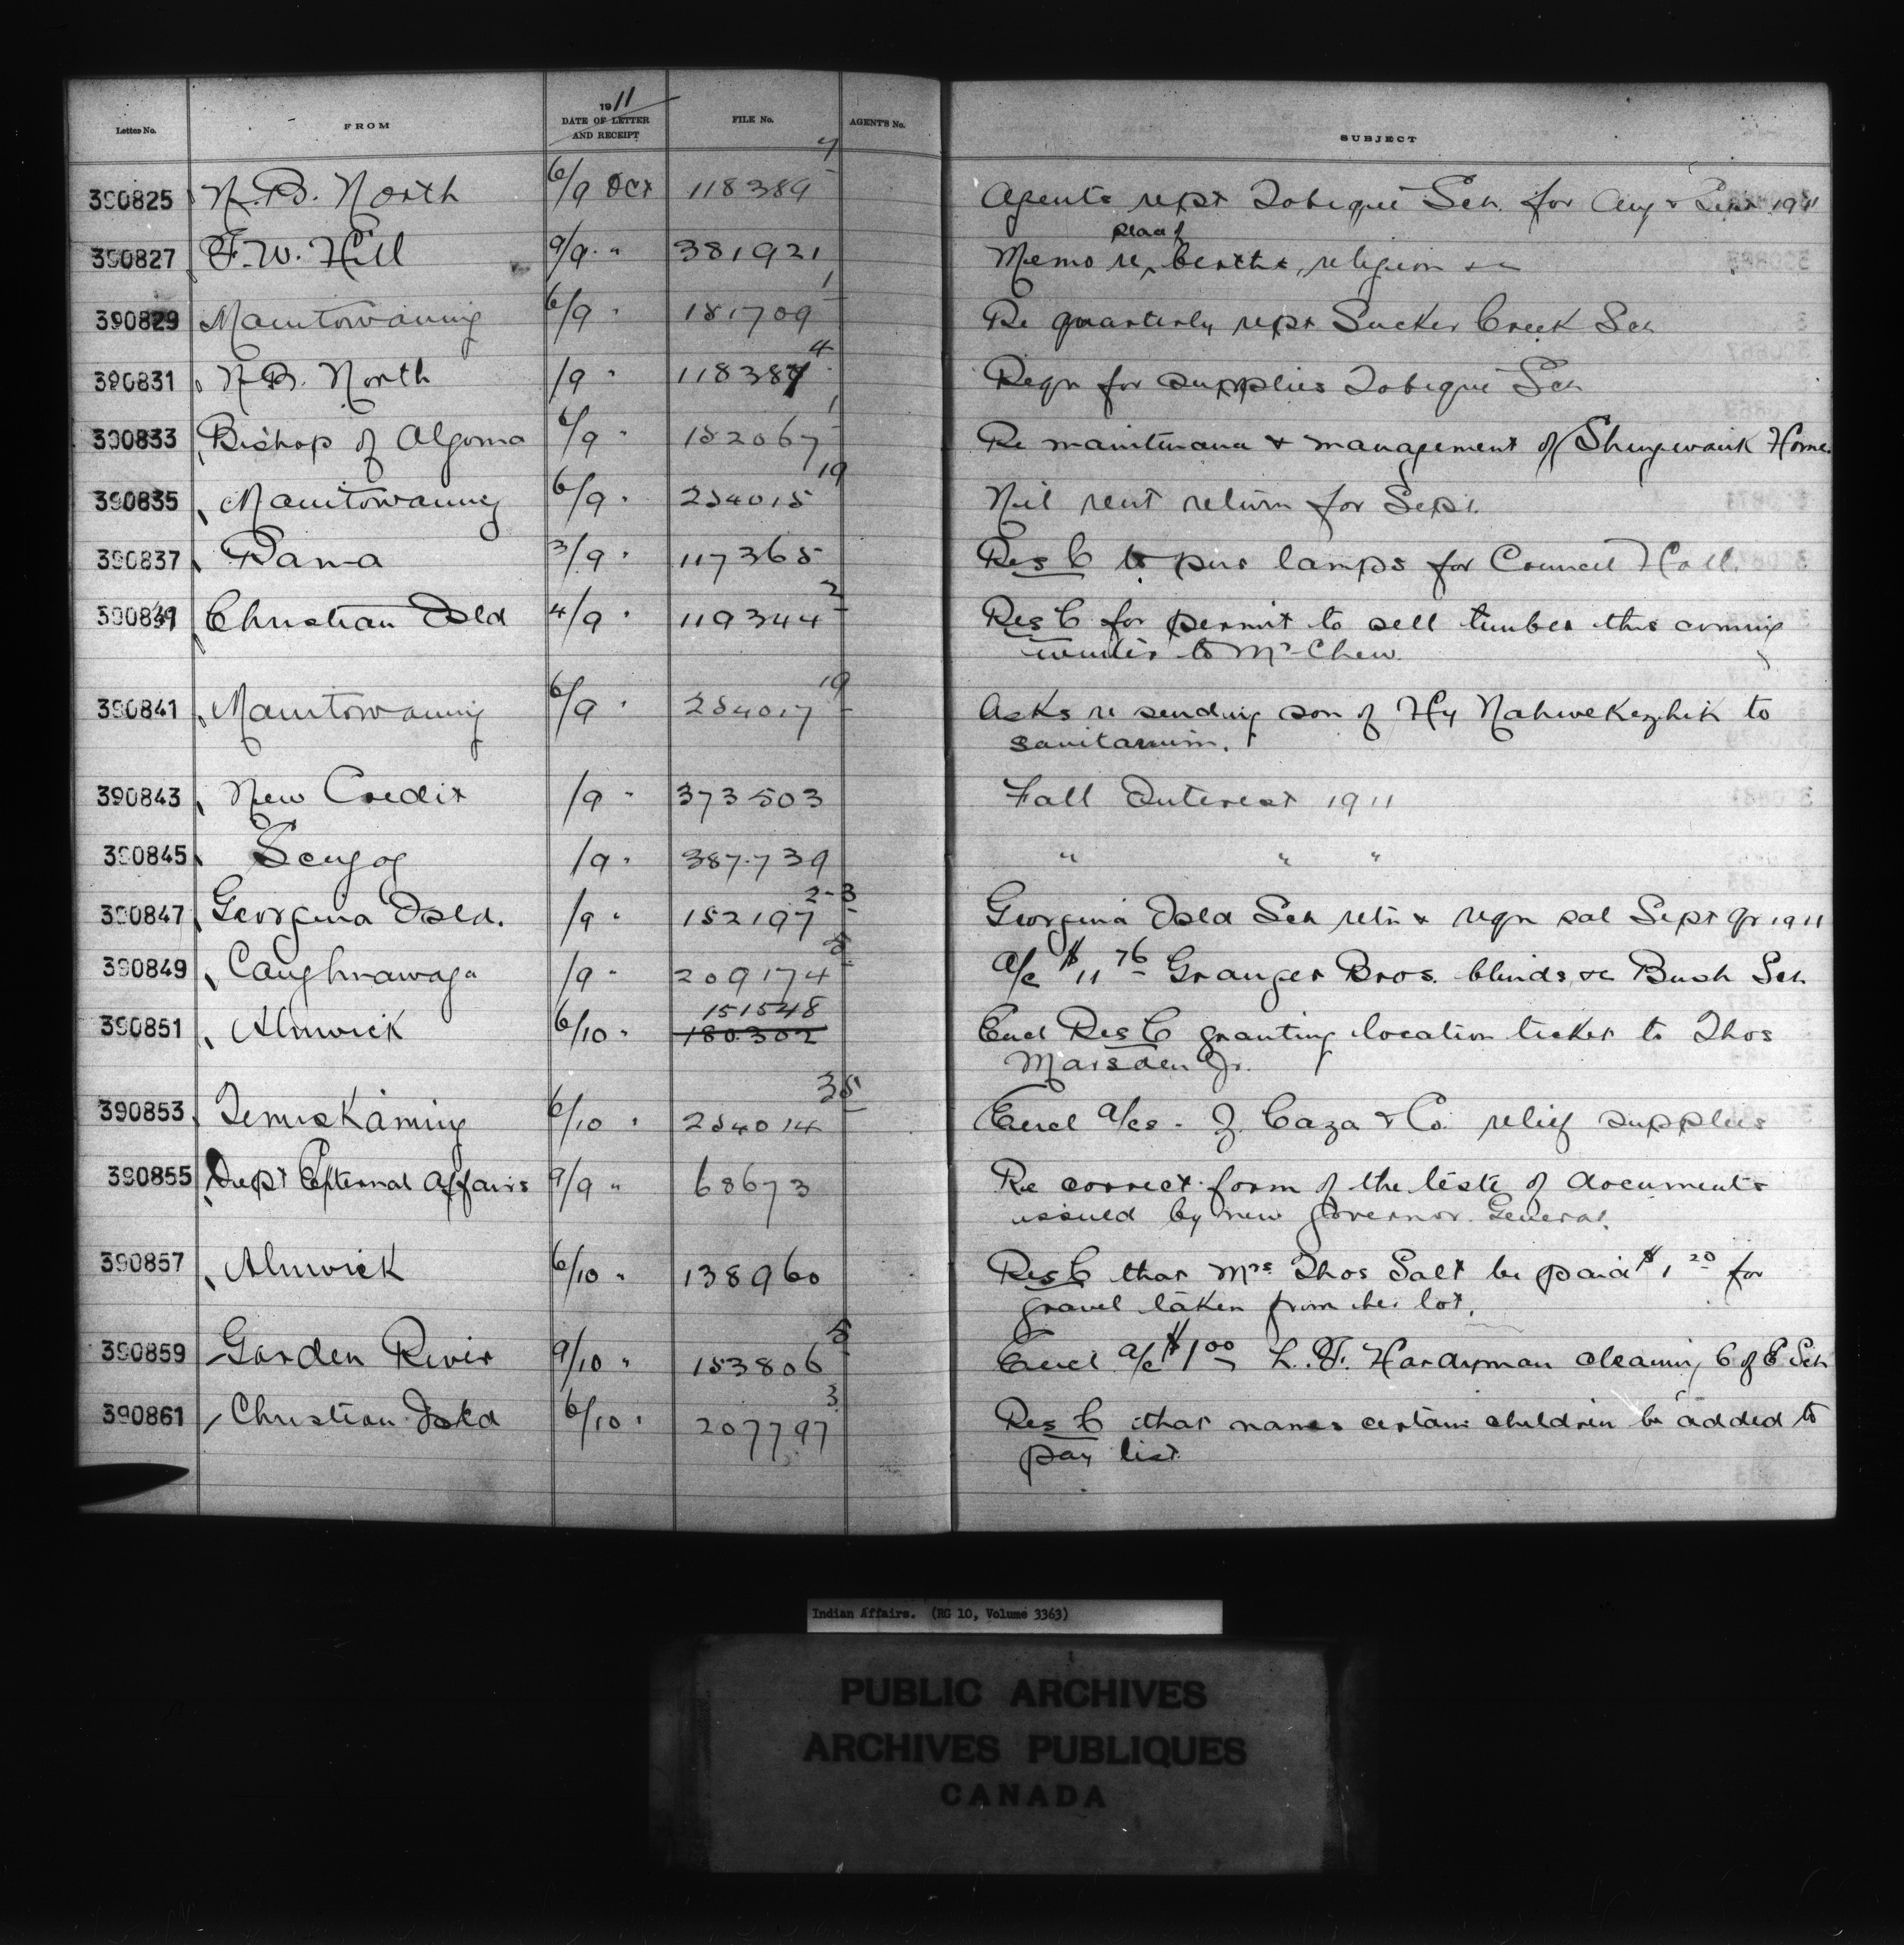 1911
Letter No. FROM DATE OF LETTER AND RECEIPT FILE No. AGENT'S No. SUBJECT
390825 N.B. North 6/9 Oct 118389 7 Agents rept Tobique Sch. for Aug & Sept 1911
390827 F.W. Hill 9/9 " 381921 Memo re place of births, religion &c
390829 Manitowaning 6/9 " 181709 1 Re quarterly rept Sucker Creek Sch
390831 N.B. North /9 " 118387 4 Reqn for supplies Tobique Sch
390833 Bishop of Algoma 6/9 " 152067 1 Re maintenance & management of Shingwauk Home.
390835 Manitowaning 6/9 " 254015 19 Nil rent return for Sept.
390837 Rama 3/9 " 117365 Res C to pur lamps for Council Hall.
390839 Christian Isld 4/9 " 119344 2 Res C for permit to sell timber this coming
winter to Mr Chew.
390841 Manitowaning 6/9 " 254017 19 Asks re sending son of Hy Nahwekezhik to
sanitarium.
390843 New Credit /9 " 373503 Fall Interest 1911
390845 Scugog /9 " 387739 " " "
390847 Georgina Isld. /9 " 152197 2-3 Georgina Isld Sch retn & reqn sal Sept qr 1911
390849 Caughnawaga /9 " 209174 5 a/c $11 76 Granger Bros. blinds &c Bush Sch
390851 Alnwick 6/10 " 151548 180302 Encl Res C granting location ticket to Thos
Marsden Jr.
390853 Temiskaming 6/10 " 254014 35 Encl a/cs - Z. Caza & Co. relief supplies
390855 Dept External Affairs 9/9 " 68673 Re correct form of the teste of documents
issued by new Governor General.
390857 Alnwick 6/10 " 138960 Res C that Mrs Thos Salt be paid $1 20 for
gravel taken from her lot.
390859 Garden River 9/10 " 153806 5 Encl a/c $1 00 L.F. Hardyman cleaning C of E Sch
390861 Christian Isld 6/10 " 207797 3 Res C that names certain children be added to
pay list
Indian Affairs. (RG 10, Volume 3363)
PUBLIC ARCHIVES
ARCHIVES PUBLIQUES
CANADA